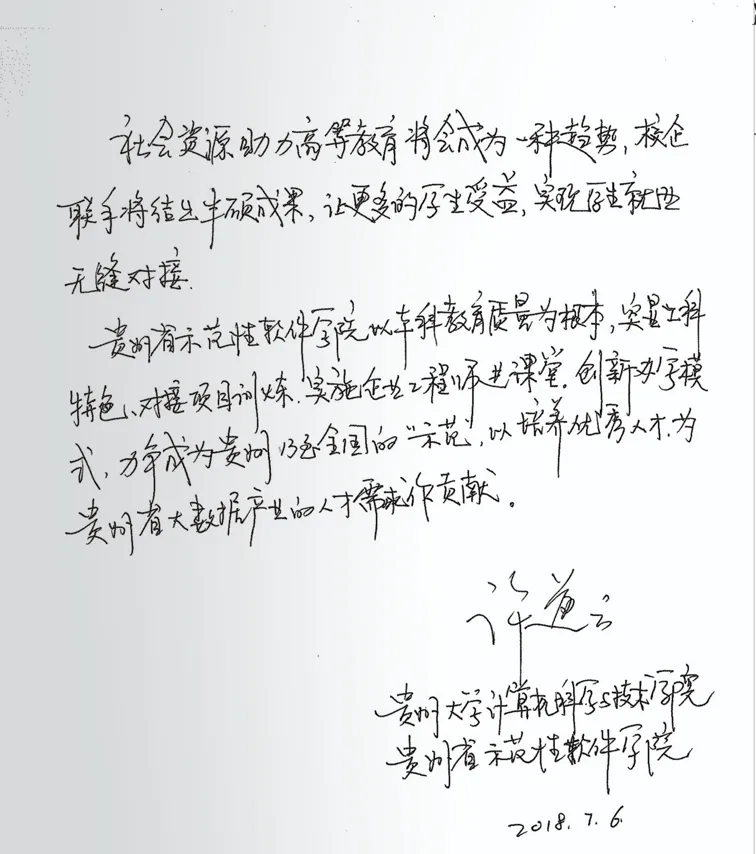 社会资源助力高等教育将会成为一种趋势，校企
联手将结出丰硕成果，让更多的学生受益，实现学生就业
无缝对接.
贵州省示范性软件学院以本科教育质量为根本，突显工科
特色、对接项目训炼.实施企业工程师进课堂.创新办学模
式，力争成为贵州乃至全国的“示范”，以培养优秀人才.为
贵州省大数据产业的人才需求作贡献。
许道云
贵州大学计算机科学与技术学院
贵州省示范性软件学院
2018.7.6